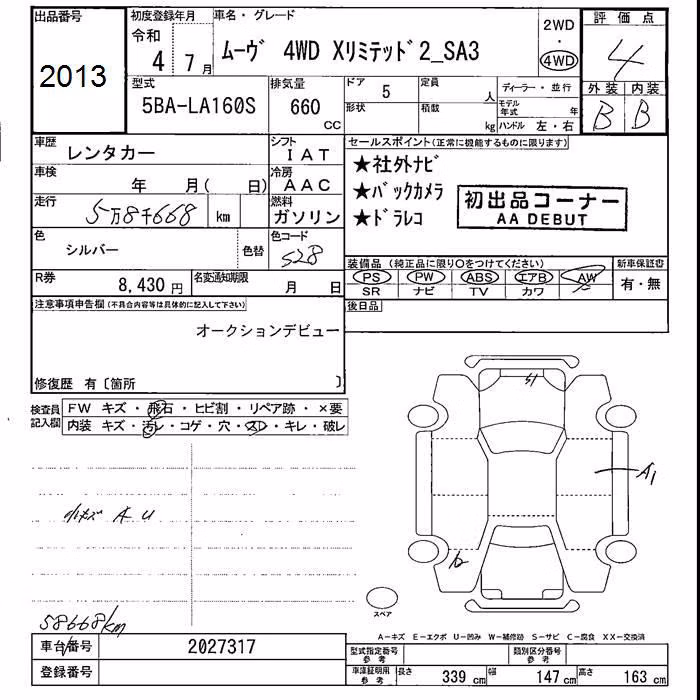 出品番号 初度登録年月 車名・グレード 2WD 評価点
2013 令和 4年 7月 ムーヴ 4WD Xリミテッド2_SA3 4WD 4
型式 排気量 ドア 5 定員 人 ディーラー・並行 外装 内装
5BA-LA160S 660 CC 形状 積載 kg モデル年式 年 B B
ハンドル 左・右
車歴 レンタカー シフト IAT セールスポイント(正常に機能するものに限ります)
車検 年 月( 日) 冷房 AAC ★社外ナビ
走行 5万8千668 km 燃料 ガソリン ★バックカメラ
★ドラレコ
初出品コーナー
AA DEBUT
色 シルバー 色替 色コード S28
装備品(純正品に限り○をつけてください) 新車保証書
PS PW ABS エアB AW 有・無
SR ナビ TV カワ
R券 8,430円 名変通知期限 月 日
後日品
注意事項申告欄(不具合内容等は具体的に記入して下さい)
オークションデビュー
修復歴 有〔箇所 〕
検査員記入欄 FW キズ・飛石・ヒビ割・リペア跡・×要
内装 キズ・汚レ・コゲ・穴・スレ・キレ・破レ
A1
小キズ A U
スペア
58668km
A-キズ E-エクボ U-凹み W-補修跡 S-サビ C-腐食 XX-交換済
車台番号 2027317 型式指定番号 参考 類別区分番号 参考
登録番号 車庫証明用 参考 長さ 339 cm 幅 147 cm 高さ 163 cm